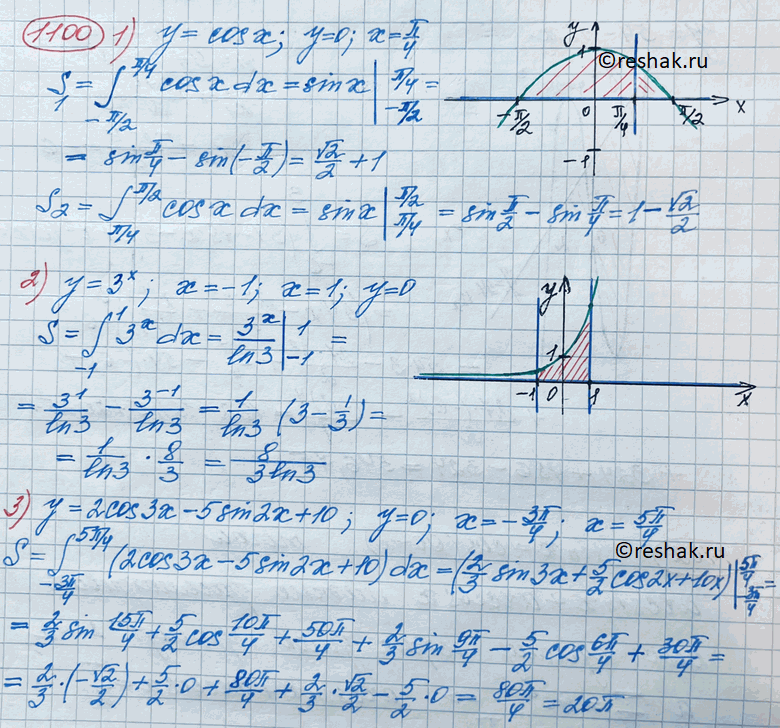 1100 1) y = cosx; y=0; x = π/4
S₁ = ∫_{-π/2}^{π/4} cosx dx = sinx |_{-π/2}^{π/4} =
= sin π/4 − sin(−π/2) = √2/2 + 1
S₂ = ∫_{π/4}^{π/2} cosx dx = sinx |_{π/4}^{π/2} = sin π/2 − sin π/4 = 1 − √2/2
y
1
©reshak.ru
−π/2 0 π/4 π/2 x
−1
2) y = 3ˣ; x = −1; x = 1; y = 0
S = ∫_{-1}^{1} 3ˣ dx = 3ˣ/ln3 |_{-1}^{1} =
= 3¹/ln3 − 3⁻¹/ln3 = 1/ln3 (3 − 1/3) =
= 1/ln3 · 8/3 = 8/3ln3
y
1
−1 0 1 x
3) y = 2cos3x − 5sin2x + 10; y = 0; x = −3π/4; x = 5π/4
©reshak.ru
S = ∫_{-3π/4}^{5π/4} (2cos3x − 5sin2x + 10) dx = (2/3 sin3x + 5/2 cos2x + 10x) |_{-3π/4}^{5π/4} =
= 2/3 sin 15π/4 + 5/2 cos 10π/4 + 50π/4 + 2/3 sin 9π/4 − 5/2 cos 6π/4 + 30π/4 =
= 2/3 · (−√2/2) + 5/2 · 0 + 80π/4 + 2/3 · √2/2 − 5/2 · 0 = 80π/4 = 20π